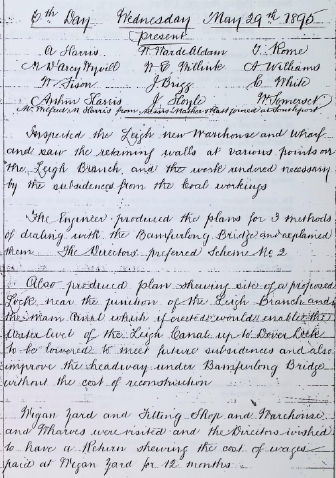 6th Day Wednesday May 29th 1895
present
A Harris W Warde Aldam T. Rome
M D'Arcy Wyvill W C Mitlink A Williams
W Fison J Brigg C White
Anthin Harris J Hoyle W Somerset
Mr Wilfred M Harris from Messrs joined at Southport
Inspected the Leigh new Warehouse and Wharf
and saw the retaining walls at various points on
the Leigh Branch, and the work rendered necessary
by the subsidences from the local workings
The Engineer produced the plans for 3 methods
of dealing with the Bamfurlong Bridge and explained
them. The Directors preferred Scheme No 2
Also produced plan shewing site of a proposed
Lock near the junction of the Leigh Branch and
the main Canal which if erected would enable the
Water level of the Leigh Canal up to Dover Lock
to be lowered to meet future subsidences and also
improve the headway under Bamfurlong Bridge
without the cost of reconstruction
Wigan Yard and Fitting Shop and Warehouse
and Wharves were visited and the Directors wished
to have a Return shewing the cost of wages
paid at Wigan Yard for 12 months